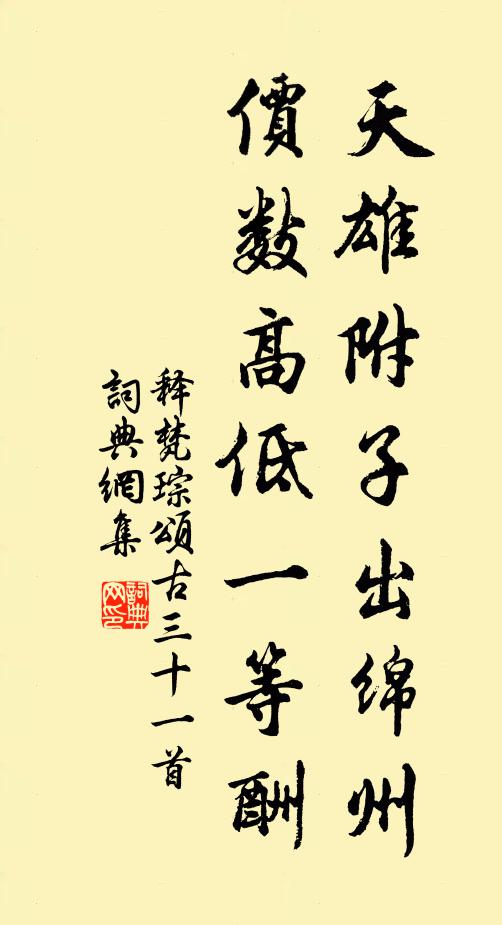 天雄附子出绵州
價数高低一等酬
释梵琮頌古三十一首
詞典網集
詞典网印